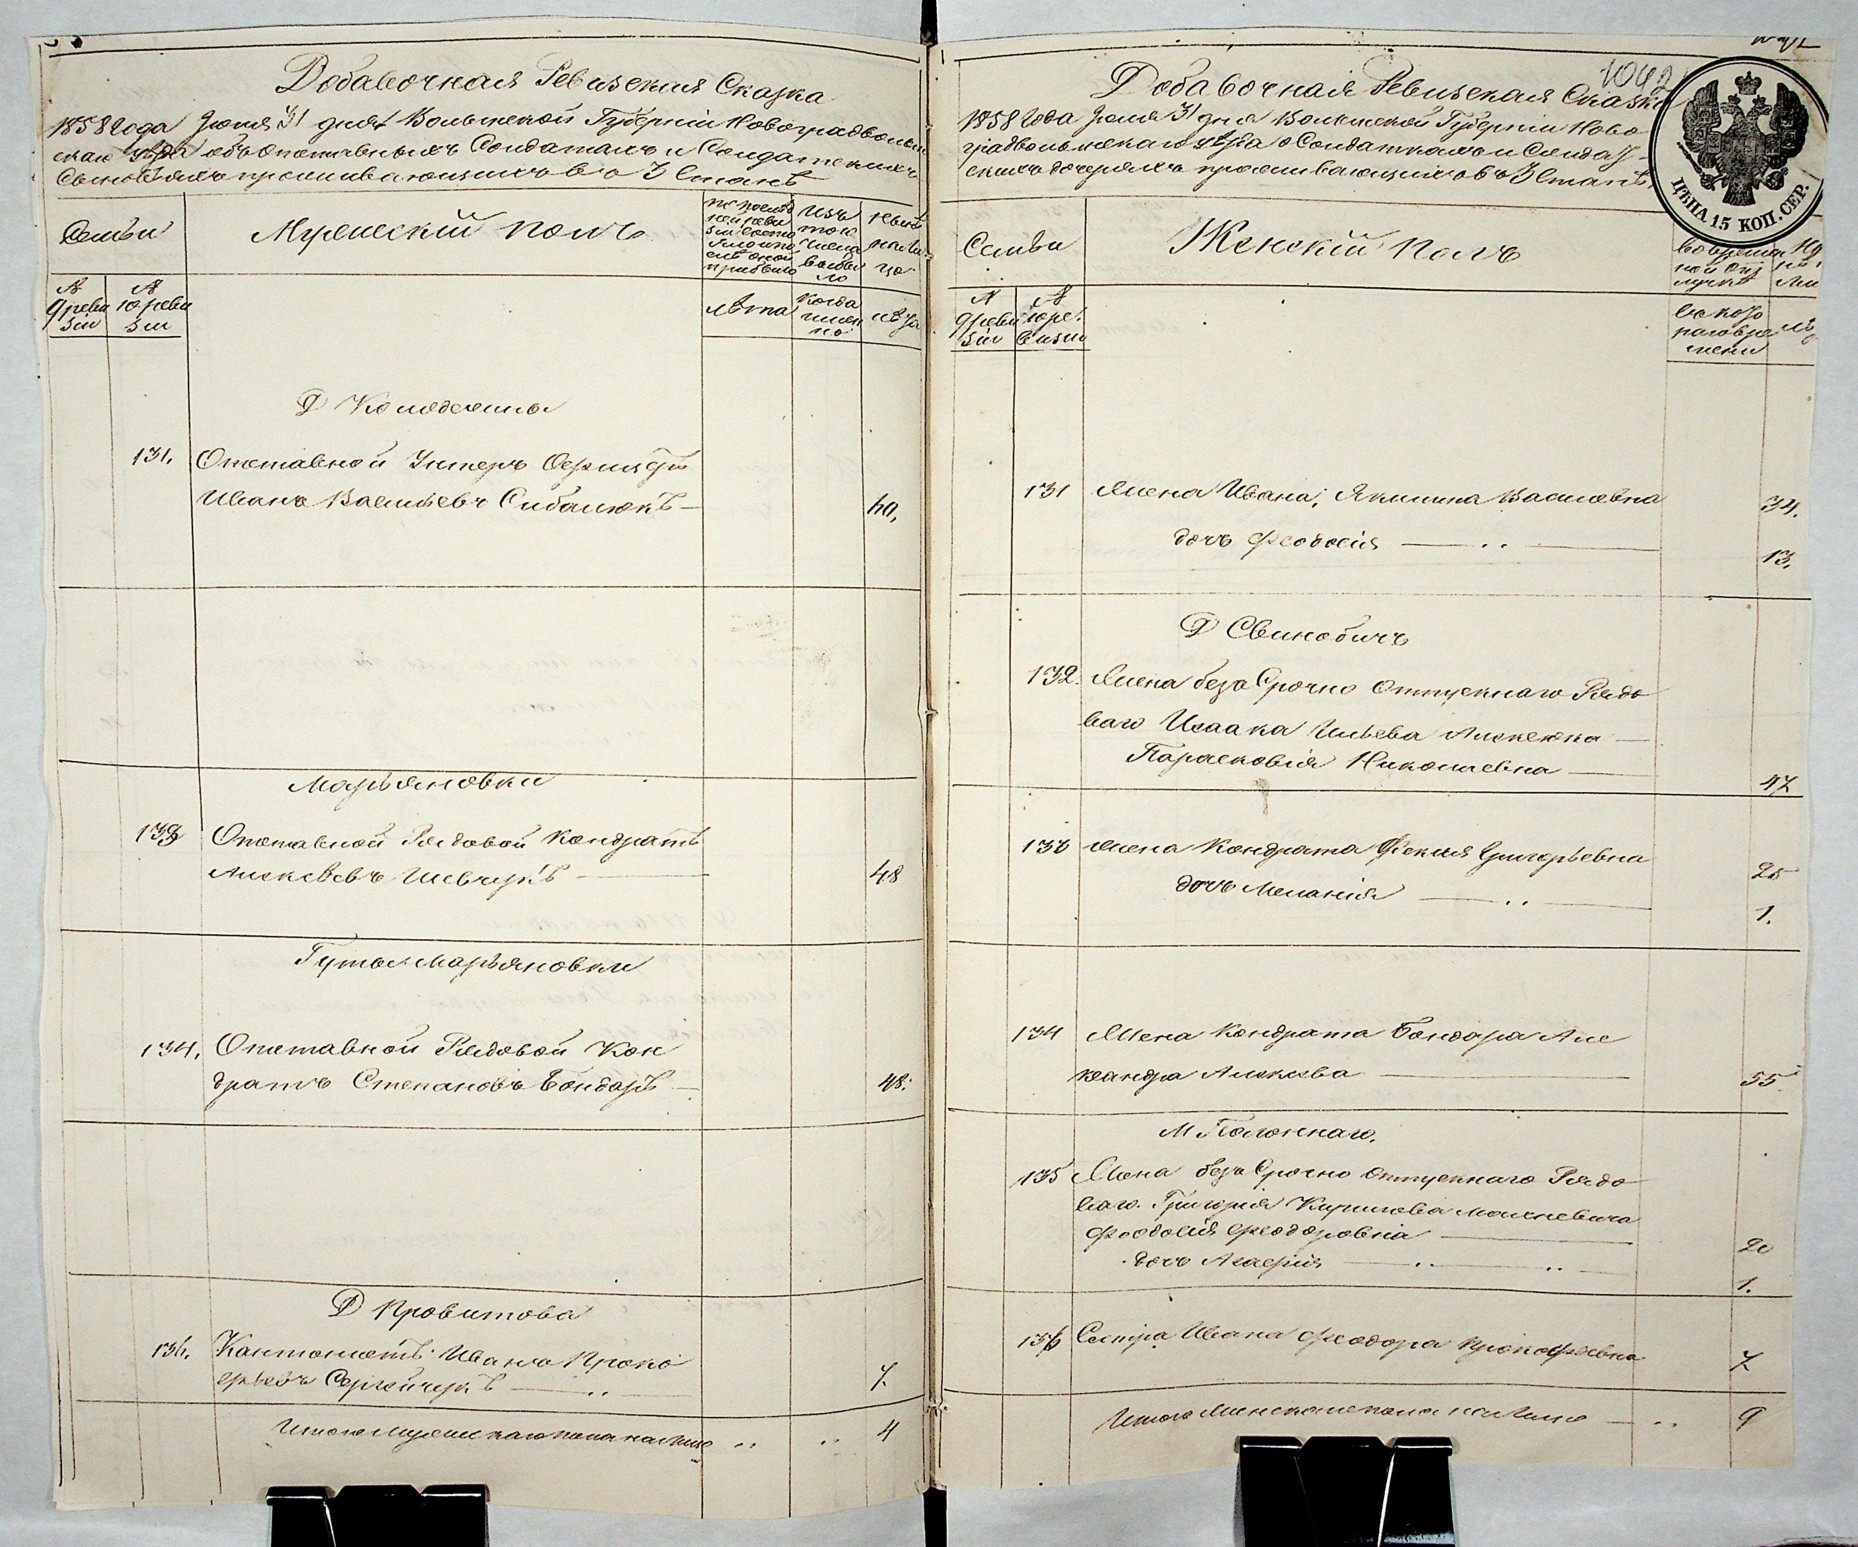 Добавочная Ревизская Сказка
1858 года Июня 31 дня Волынской Губерніи Новоградволын
скаго уѣзда объ отставныхъ Солдатахъ и Солдатскихъ
Сыновьяхъ проживающихъ во 3 Станѣ
Семьи
Мужескій полъ
Изъ
того
числа
выбы
ло
Нынѣ
на ли
цо
№
9 реви
зіи
№
10 реви
зіи
лѣта
когда
имен
но
лѣта
Д Колодежна
131. Отставной Унтеръ Офицеръ
Иванъ Васильевъ Сибалюкъ — 40.
Марьяновки
133 Отставной Рядовой Кондратъ
Алексѣевъ Шевчукъ — 48
Гута Марьяновки
134. Отставной Рядовой Кон
дратъ Степановъ Бондарь — 48.
Д Провитова
136. Кантонистъ Иванъ Проко
фьевъ Сергейчукъ — 7.
Итого Мужескаго пола на лицо „ „ 4
1042
Добавочная Ревизская Сказка
1858 Года Июня 31 дня Волынской Губерніи Ново
градволынскаго уѣзда о Солдаткахъ и Солдат-
скихъ дочеряхъ проживающихъ въ 3 Станѣ.
ЦѢНА 15 КОП. СЕР.
Семьи
Женскій Полъ
№
9 реви
зіи
№
10 ре.
визіи
во времен
ной отлу
съ кого
времени
131 Жена Ивана, Якилина Василовна 34.
дочь Феодосія — „ — 13.
Д Свинобичъ
132. Жена безъ Срочно Отпускнаго Рядо
ваго Исаака Ильева Алексюка —
Парасковія Николаевна — 47
133 Жена Кондрата Фекия Григорьевна 25
дочь Меланія — „ — 1.
134 Жена Кондрата Бондаря Але
ксандра Алексѣева — 55
М Полоннаго.
135 Жена безъ Срочно Отпускнаго Рядо
ваго Григорія Кирилова
Феодосія Феодоровна — 20
дочь Агафія — „ „ — 1.
136 Сестра Ивана Феодора Прокофьевна 7.
Итого Женскаго пола на лицо — „ 9